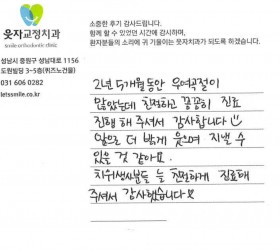 웃자교정치과
smile orthodontic clinic
성남시 중원구 성남대로 1156
도원빌딩 3~5층(퀴즈노건물)
031 606 0282
letssmile.co.kr
소중한 후기 감사드립니다.
함께 할 수 있었던 시간에 감사하며,
환자분들의 소리에 귀 기울이는 웃자치과가 되도록 하겠습니다.
2년 5개월동안 우여곡절이
많았는데 친절하고 꼼꼼히 진료
진행 해 주셔서 감사합니다
앞으로 더 밝게 웃으며 지낼 수
있을 것 같아요.
치위생사분들 늘 친절하게 진료해
주셔서 감사했습니다